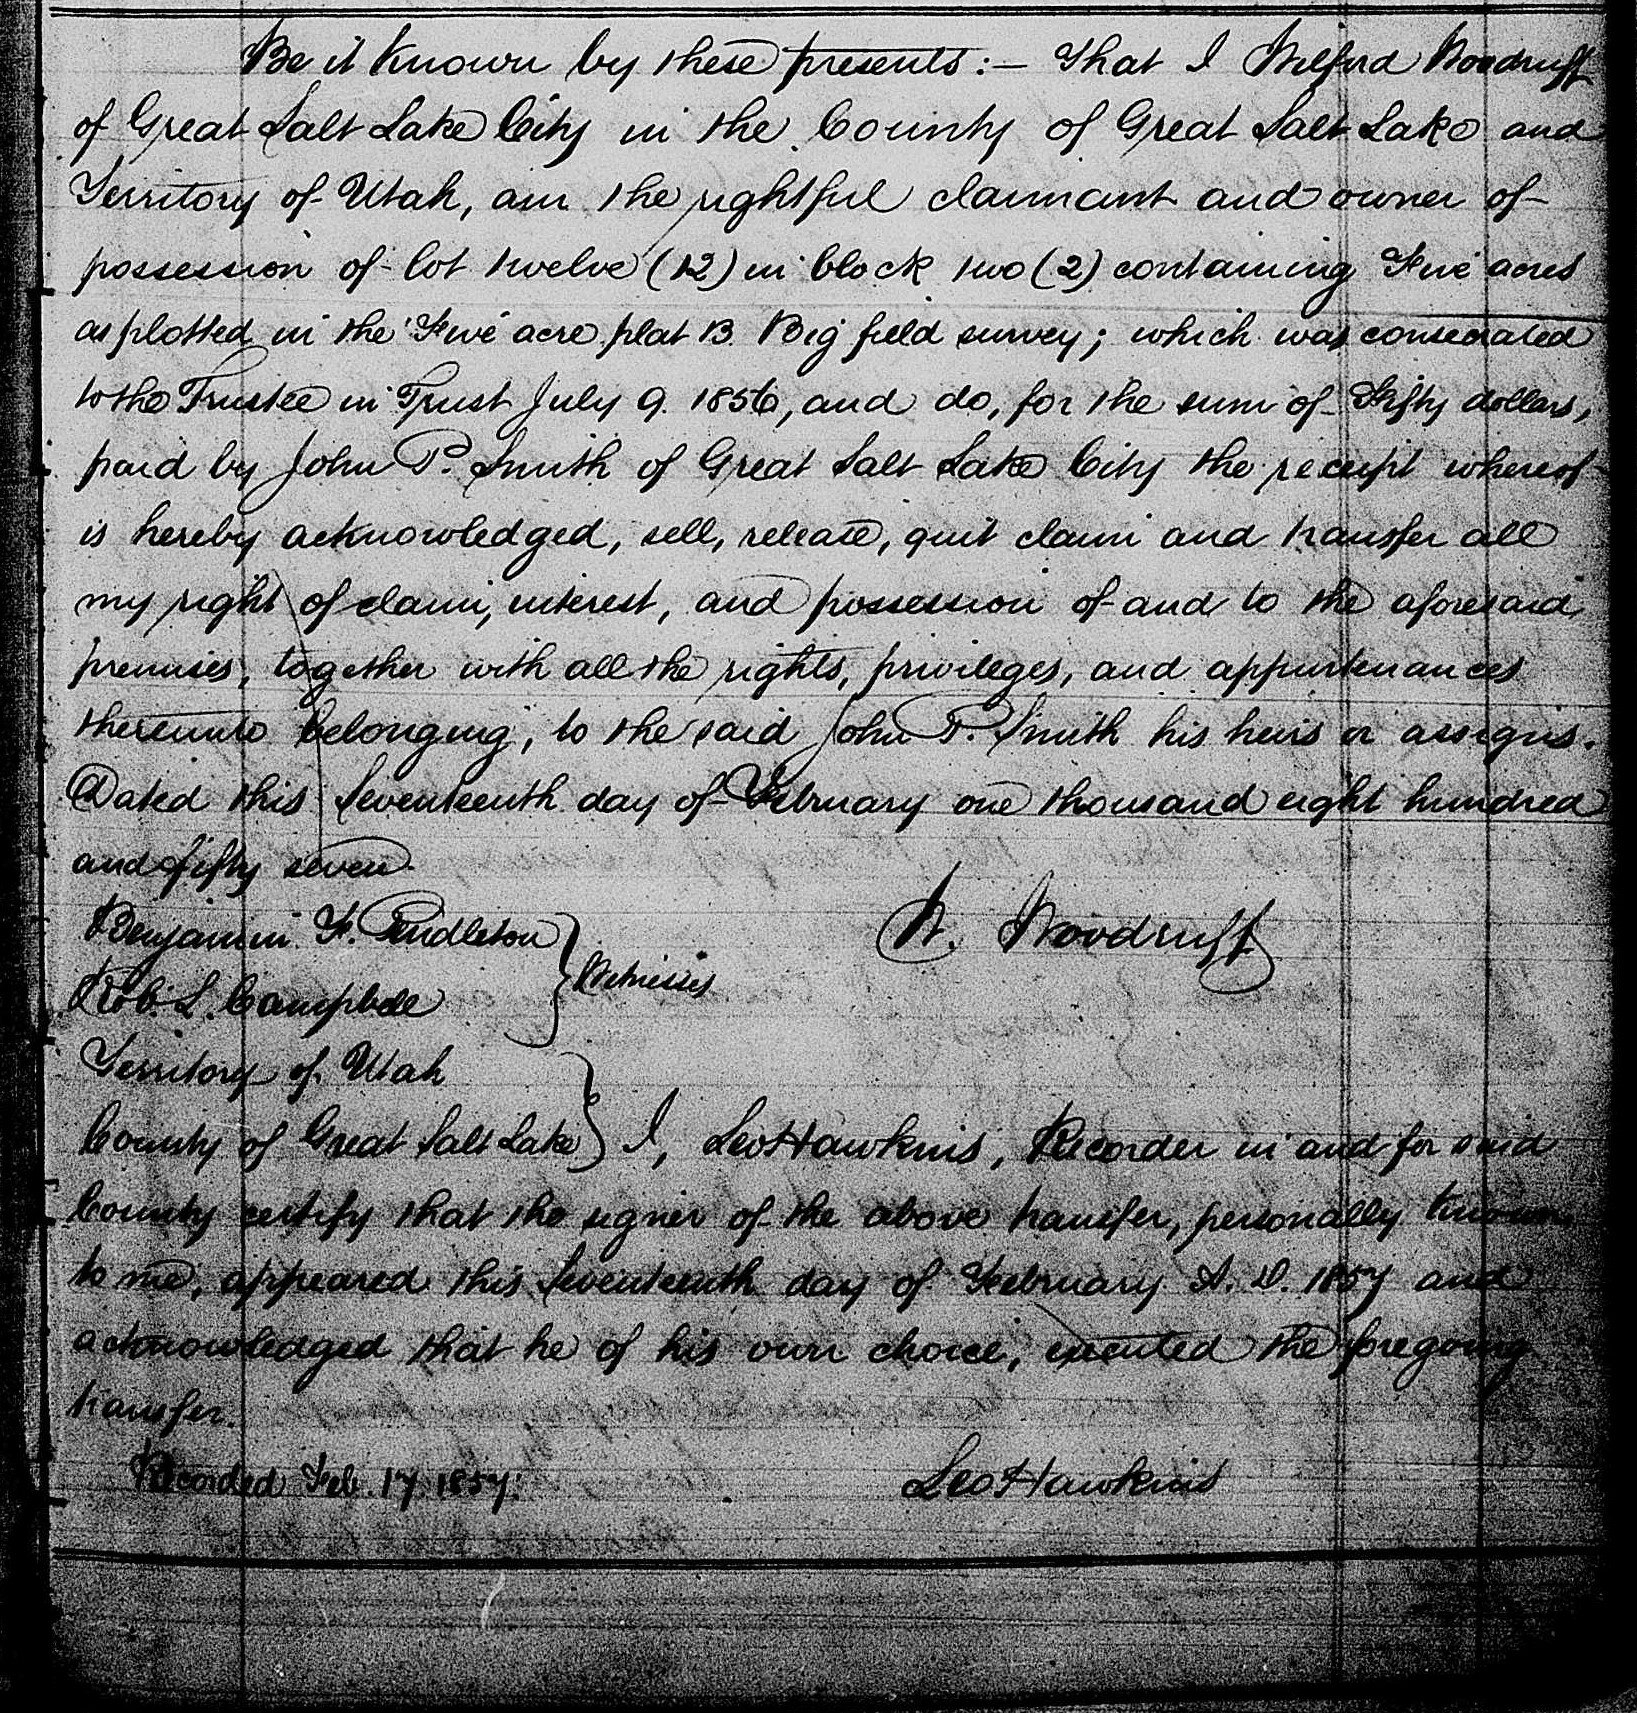 Be it Known by these presents :— That I Wilford Woodruff
of Great Salt Lake City in the County of Great Salt Lake and
Territory of Utah, am the rightful claimant and owner of
possession of lot twelve (12) in block two (2) containing Five acres
as plotted in the Five acre plat B. Big field survey; which was consecrated
to the Trustee in Trust July 9. 1856, and do, for the sum of Fifty dollars,
paid by John P. Smith of Great Salt Lake City the receipt whereof
is hereby acknowledged, sell, release, quit claim and transfer all
my right of claim, interest, and possession of and to the aforesaid
premises, together with all the rights, privileges, and appurtenances
thereunto belonging, to the said John P. Smith his heirs or assigns.
Dated this Seventeenth day of February one thousand eight hundred
and fifty seven.
Benjamin F. Pendleton
W. Woodruff
Witnesses
Rob. L. Campbell
Territory of Utah
County of Great Salt Lake } I, Leo Hawkins, Recorder in and for said
County certify that the signer of the above transfer, personally known
to me, appeared this Seventeenth day of February A. D. 1857 and
acknowledged that he of his own choice, executed the foregoing
transfer.
Recorded Feb. 17. 1857.
Leo Hawkins